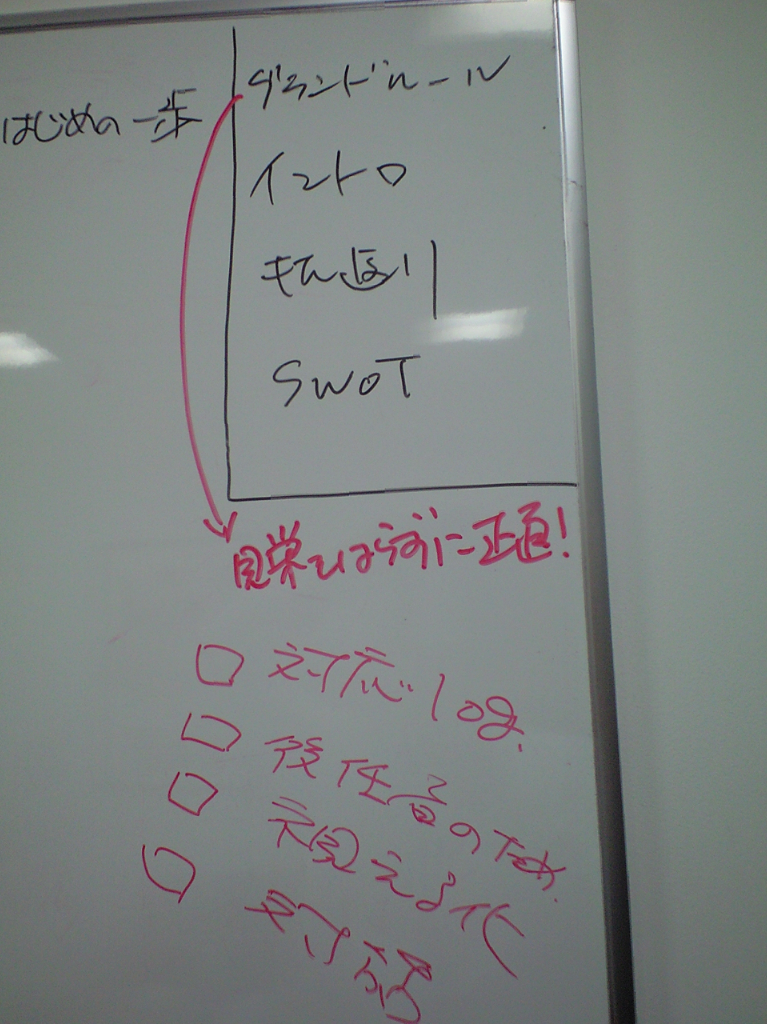 はじめの一歩
グランドルール
イントロ
SWOT
見栄をはらずに正直!
対応log.
後任者のため
見える化
対話